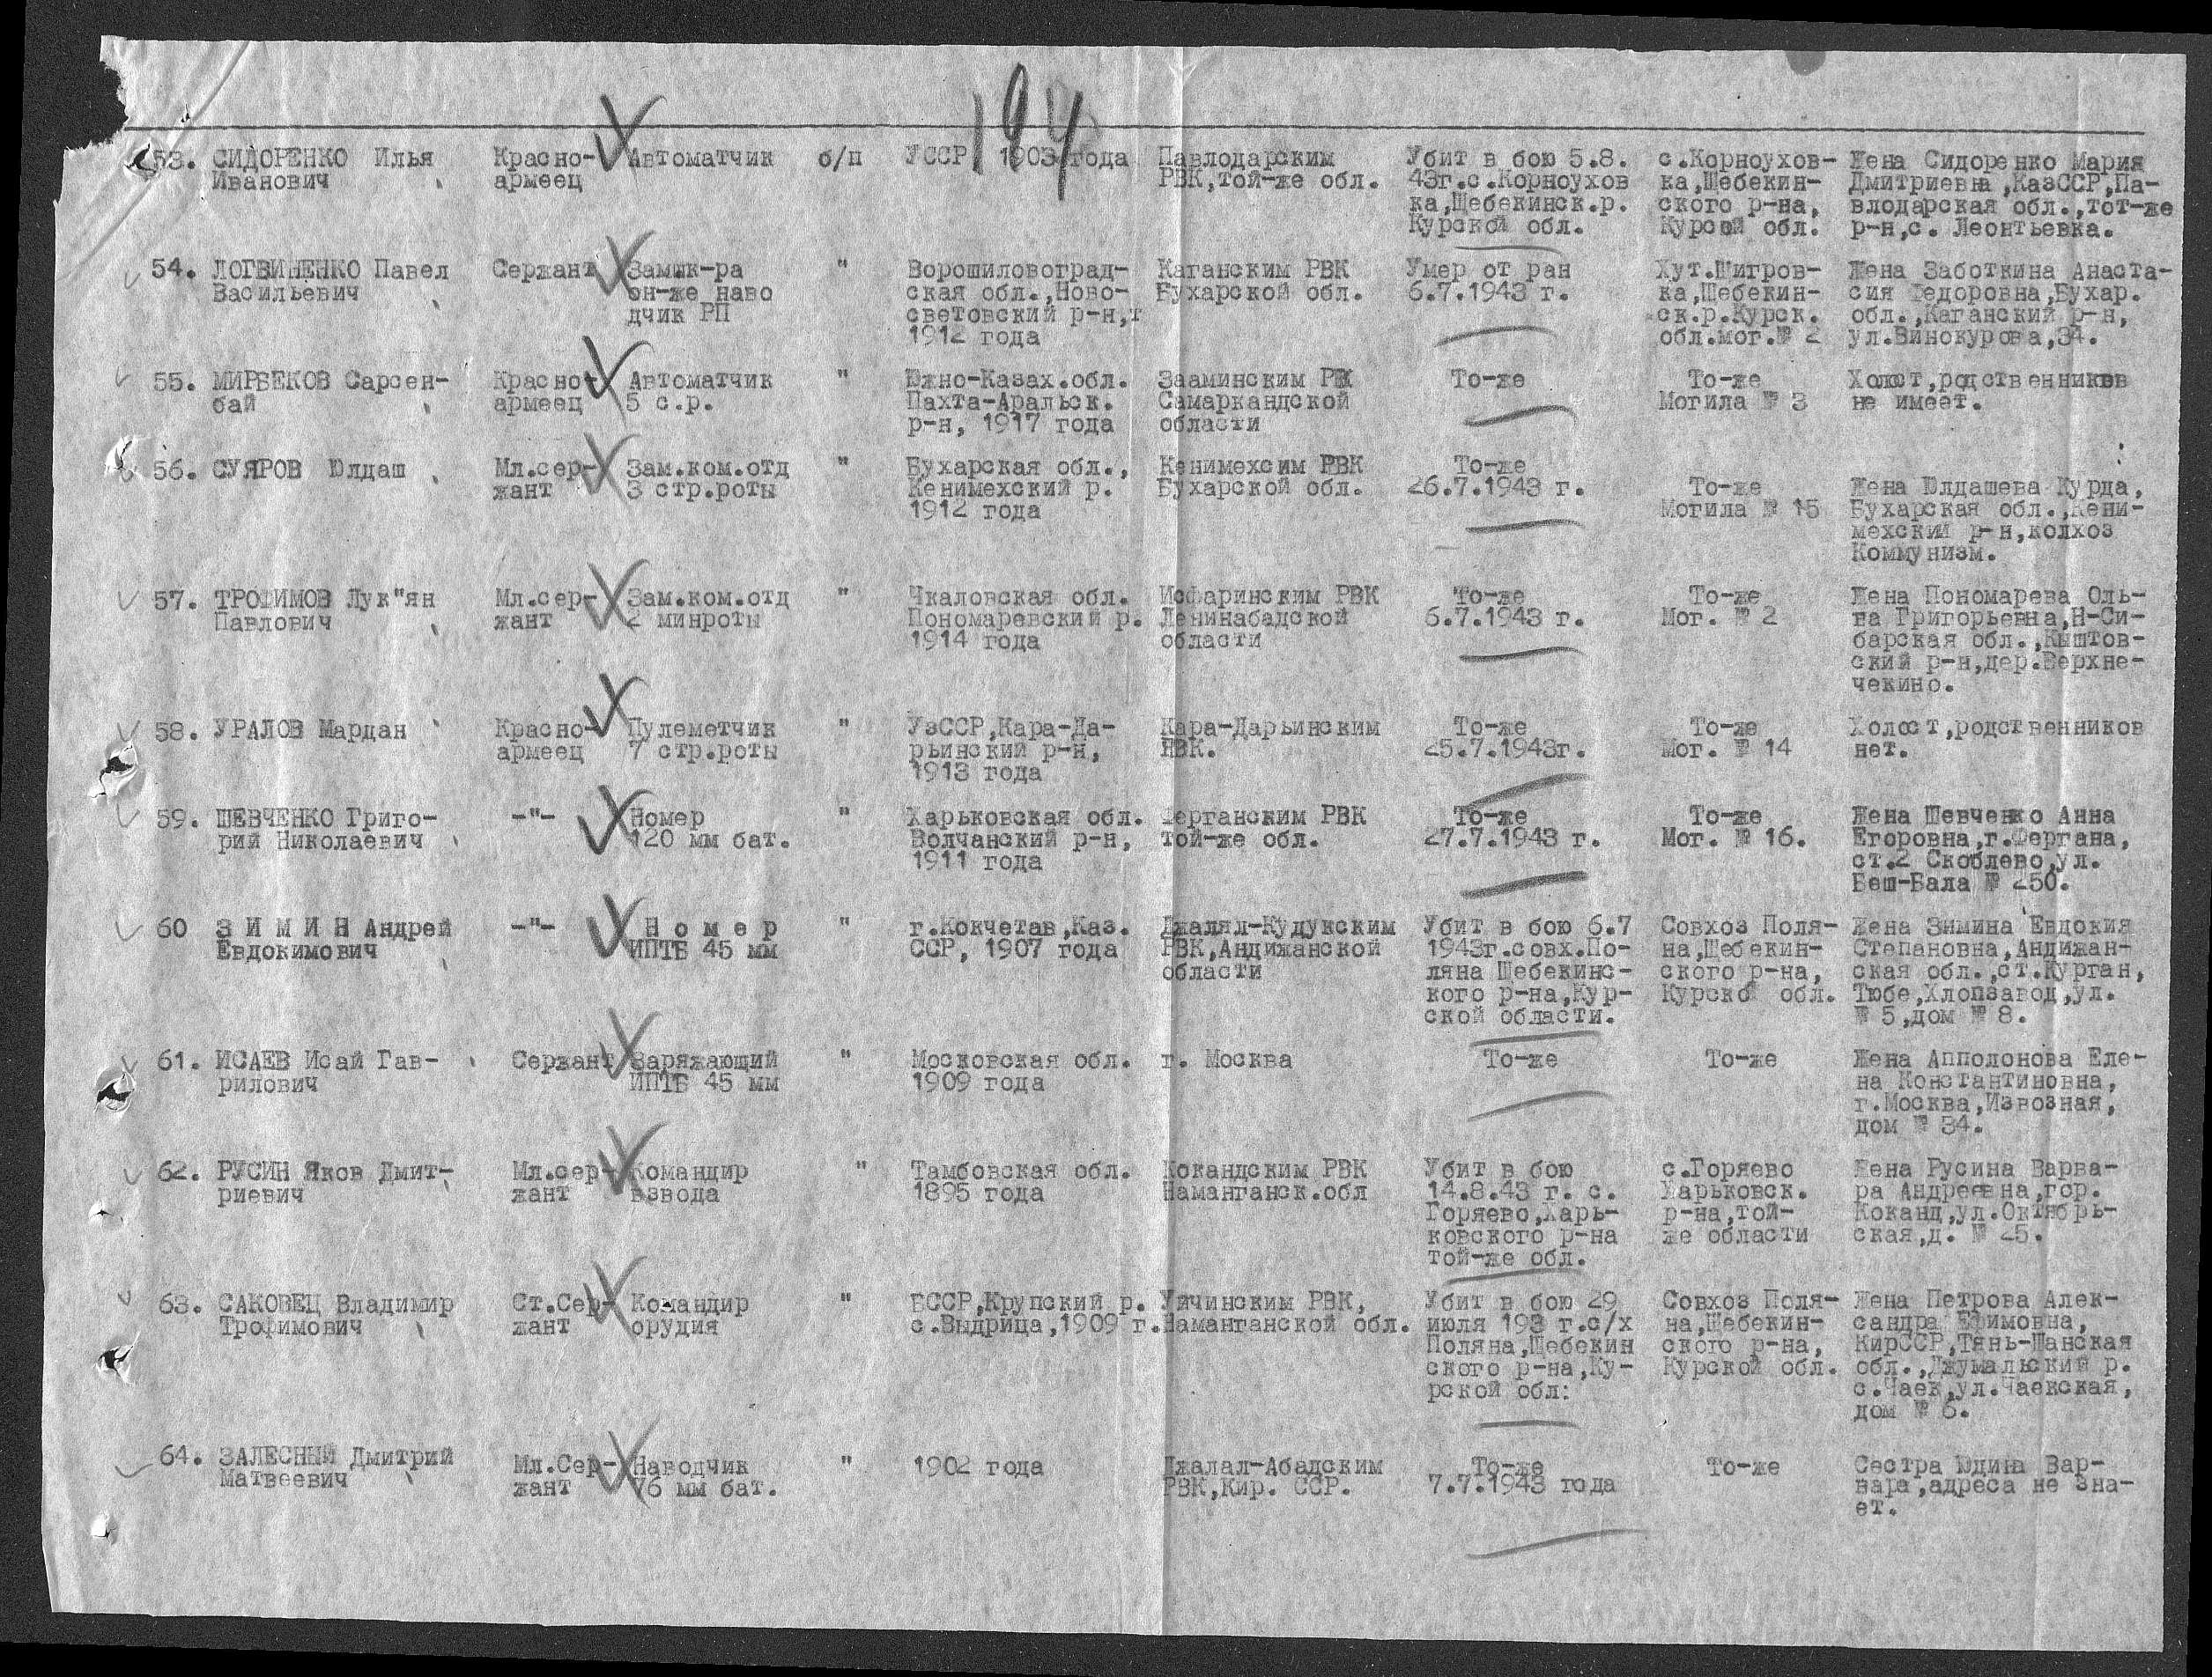 194
53. СИДОРЕНКО Илья Красно- Автоматчик б/п УССР 1903 года Павлодарским Убит в бою 5.8. с.Корноухов- Жена Сидоренко Мария
Иванович армеец РВК,той-же обл. 43г.с.Корноухов ка,Шебекин- Дмитриевна,КазССР,Па-
ка,Шебекинск.р. ского р-на, влодарская обл.,тот-же
Курской обл. Курсой обл. р-н,с. Леонтьевка.
54. ЛОГВИНЕНКО Павел Сержант Замик-ра " Ворошиловоград- Каганским РВК Умер от ран Хут.Шигров- Жена Заботкина Анаста-
Васильевич он-же наво ская обл.,Ново- Бухарской обл. 6.7.1943 г. ка,Шебекин- сия Федоровна,Бухар.
дчик РП световский р-н,т ск.р.Курск. обл.,Каганский р-н,
1912 года обл.мог.№ 2 ул.Винокурова,34.
55. МИРБЕКОВ Сарсен- Красно- Автоматчик " Южно-Казах.обл. Зааминским РВК То-же То-же Холост,родственников
бай армеец 5 с.р. Пахта-Аральск. Самаркандской Могила № 3 не имеет.
р-н, 1917 года области
56. СУЯРОВ Юлдаш Мл.сер- Зам.ком.отд " Бухарская обл., Кенимехсим РВК То-же
жант 3 стр.роты Кенимехский р. Бухарской обл. 26.7.1943 г. То-же Жена Юлдашева Курда,
1912 года Могила № 15 Бухарская обл.,Кени-
мехский р-н,колхоз
Коммунизм.
57. ТРОФИМОВ Лук"ян Мл.сер- Зам.ком.отд " Чкаловская обл. Исфаринским РВК То-же То-же Жена Пономарева Оль-
Павлович жант 2 минроты Пономаревский р. Ленинабадской 6.7.1943 г. Мог. № 2 на Григорьевна,Н-Си-
1914 года области барская обл.,Кыштов-
ский р-н,дер.Верхне-
чекино.
58. УРАЛОВ Мардан Красно- Пулеметчик " УзССР,Кара-Да- Кара-Дарьинским То-же То-же Холост,родственников
армеец 7 стр.роты рьинский р-н, РВК. 25.7.1943г. Мог. № 14 нет.
1913 года
59. ШЕВЧЕНКО Григо- -"- Номер " Харьковская обл. Ферганским РВК То-же То-же Жена Шевченко Анна
рий Николаевич 120 мм бат. Волчанский р-н, той-же обл. 27.7.1943 г. Мог. № 16. Егоровна,г.Фергана,
1911 года ст.2 Скоблево,ул.
Беш-Бала № 250.
60 З И М И Н Андрей -"- Н о м е р " г.Кокчетав,Каз. Джалял-Кудукским Убит в бою 6.7 Совхоз Поля- Жена Зимина Евдокия
Евдокимович ИПТБ 45 мм ССР, 1907 года РВК,Андижанской 1943г.совх.По- на,Шебекин- Степановна,Андижан-
области ляна Шебекинс- ского р-на, ская обл.,ст.Курган,
кого р-на,Кур- Курско обл. Тюбе,Хлопзавод,ул.
ской области. № 5,дом № 8.
61. ИСАЕВ Исай Гав- Сержант Заряжающий " Московская обл. г. Москва То-же То-же Жена Апполонова Еле-
рилович ИПТБ 45 мм 1909 года на Константиновна,
г.Москва,Извозная,
дом № 34.
62. РУСИН Яков Дмит- Мл.сер- Командир " Тамбовская обл. Кокандским РВК Убит в бою с.Горяево Жена Русина Варва-
риевич жант взвода 1895 года Наманганск.обл 14.8.43 г. с. Харьковск. ра Андреевна,гор.
Горяево,Харь- р-на,той- Коканд,ул.Октябрь-
ковского р-на же области ская,д. № 25.
той-же обл.
63. САКОВЕЦ Владимир Ст.Сер- Командир " БССР,Крупский р. Уйчинским РВК, Убит в бою 29 Совхоз Поля- Жена Петрова Алек-
Трофимович жант орудия с.Выдрица,1909 г. Наманганской обл. июля 193 г.с/х на,Шебекин- сандра Ефимовна,
Поляна,Шебекин ского р-на, КирССР,Тянь-Шанская
ского р-на,Ку- Курской обл. обл.,Джумальский р.
рской обл: с.Чаек,ул.Чаекская,
дом № 6.
64. ЗАЛЕСНЫЙ Дмитрий Мл.Сер- Наводчик " 1902 года Джалал-Абадским То-же То-же Сестра Юдина Вар-
Матвеевич жант 76 мм бат. РВК,Кир. ССР. 7.7.1943 года вара,адреса не зна-
ет.